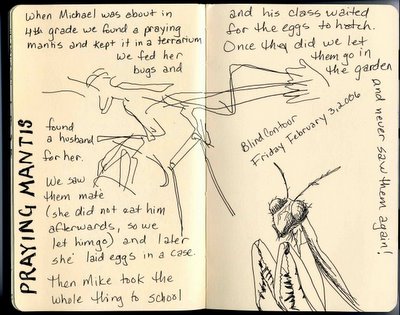 PRAYING MANTIS
When Michael was about in
4th grade we found a praying
mantis and kept it in a terrarium
we fed her
bugs and
found
a husband
for her.
We saw
them mate
(she did not eat him
afterwards, so we
let him go) and later
she laid eggs in a case.
Then Mike took the
whole thing to school
and his class waited
for the eggs to hatch.
Once they did we let
them go in
the garden
and never saw them again!
Blind Contour
Friday February 3, 2006